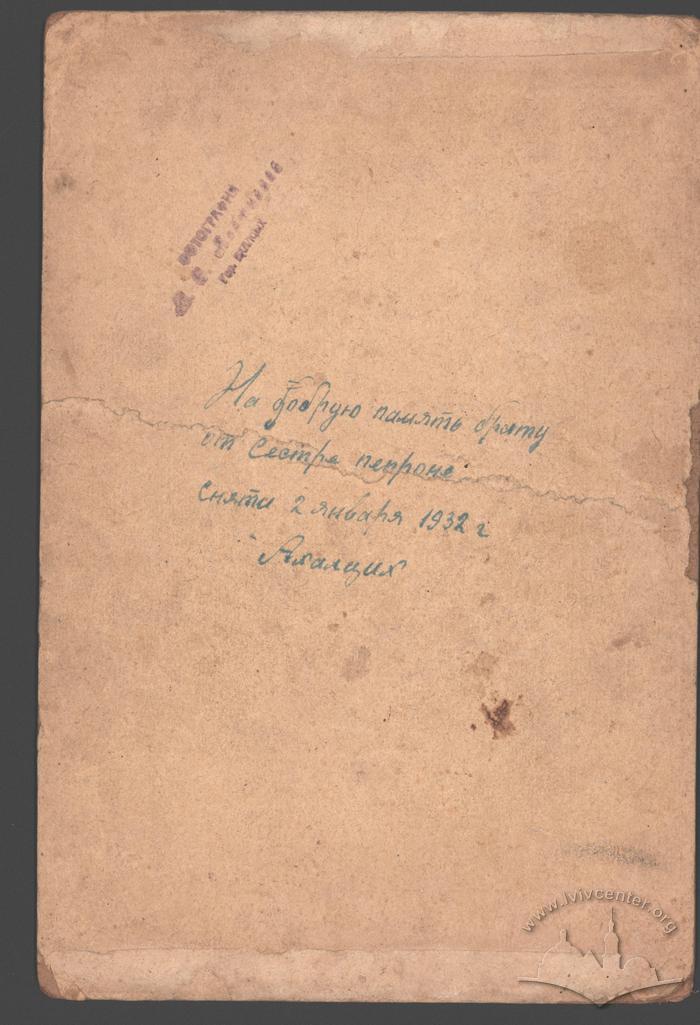 ФОТОГРАФИЯ
гор. Ахалцих
На добрую память брату
от Сестре пепроне
Сняти 2 января 1932 г
Ахалцих
www.lvivcenter.org